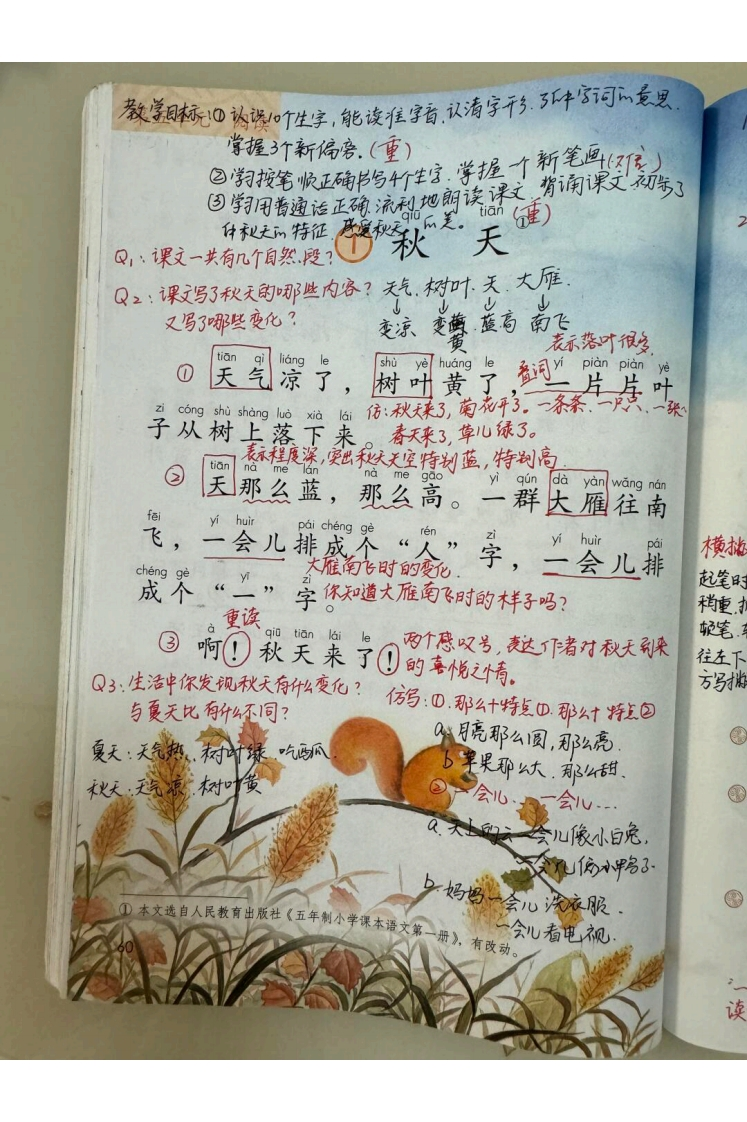 教学目标：① 认识10个生字，能读准字音，认清字形，了解字词的意思.
掌握3个新偏旁。（重）
② 学习按笔顺正确书写4个生字.掌握一个新笔画
③ 学习用普通话正确.流利地朗读课文.背诵课文.初步了
解秋天的特征.感受秋天的美。（重）
qiū tiān
1 秋 天①
Q1：课文一共有几个自然段？
Q2：课文写了秋天的哪些内容？ 天气.树叶.天.大雁.
又写了哪些变化？ 变凉 变黄 蓝高 南飞
表示落叶很多.
tiān qì liáng le shù yè huáng le yí piàn piàn yè
① 天气凉了，树叶黄了，一片片叶
叠词
仿：秋天来了，菊花开了。一条条.一只只.一张
zi cóng shù shàng luò xià lái
子从树上落下来。
春天来了，草儿绿了。
表示程度深，突出秋天天空特别蓝，特别高.
tiān nà me lán nà me gāo yì qún dà yàn wǎng nán
② 天那么蓝，那么高。一群大雁往南
fēi yí huìr pái chéng gè rén zì yí huìr pái
飞，一会儿排成个“人”字，一会儿排
大雁南飞时的变化.
chéng gè yī zì
成个“一”字。
你知道大雁南飞时的样子吗？
重读
à qiū tiān lái le
③ 啊！秋天来了！
两个感叹号，表达作者对秋天到来
的喜悦之情。
Q3：生活中你发现秋天有什么变化？
与夏天比有什么不同？
仿写：①.那么+特点①.那么+特点②
夏天：天气热，树叶绿 吃西瓜
秋天：天气凉.树叶黄
a.月亮那么圆，那么亮.
b 苹果那么大.那么甜.
② 一会儿… 一会儿…
a.天上的云一会儿像小白兔，
一会儿像小甲鸟了.
b.妈妈一会儿洗衣服.
一会儿看电视.
① 本文选自人民教育出版社《五年制小学课本语文第一册》，有改动。
60
起笔时
稍重，
顿笔，
往左下
方写
读